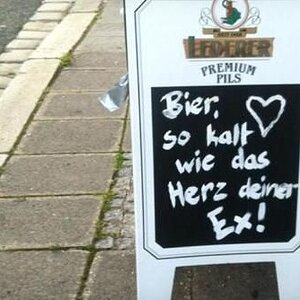 LEDERER
PREMIUM
PILS
Bier,
so kalt
wie das
Herz deiner
Ex!